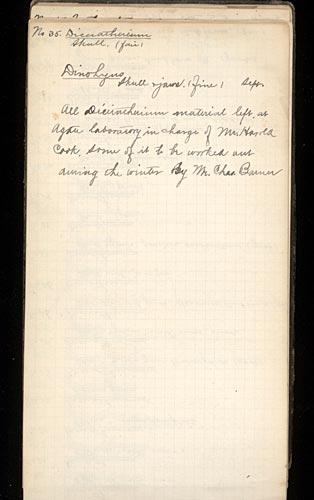 No 35. Diceratherium
Skull. (fair)
Dinohyus
Skull & jaws. (fine) Sept.
All Diceratherium material left at
Agate laboratory in charge of Mr. Harold
Cook, some of it to be worked out
during the winter By Mr. Chas Barner